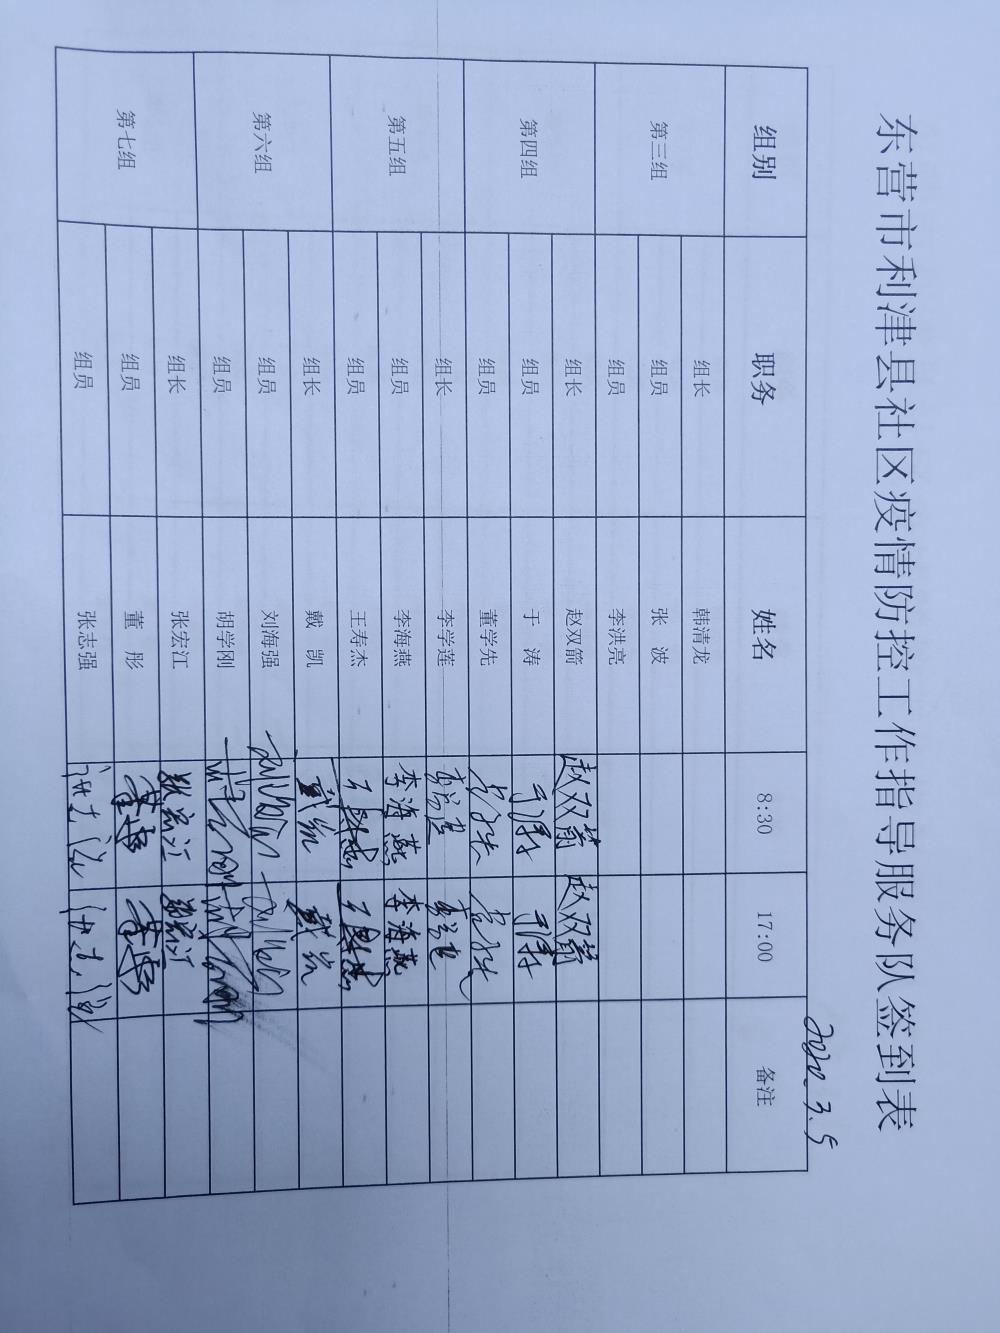 东营市利津县社区疫情防控工作指导服务队签到表
2020.3.5
组别 职务 姓名 8:30 17:00 备注
第三组 组长 韩清龙
组员 张 波
组员 李洪亮
第四组 组长 赵双箭 赵双箭 赵双箭
组员 于 涛 于涛 于涛
组员 董学先
第五组 组长 李学莲 李学莲 李学莲
组员 李海燕 李海燕 李海燕
组员 王寿杰 王寿杰 王寿杰
第六组 组长 戴 凯 戴凯 戴凯
组员 刘海强
组员 胡学刚
第七组 组长 张宏江 张宏江 张宏江
组员 董 彤 董彤 董彤
组员 张志强